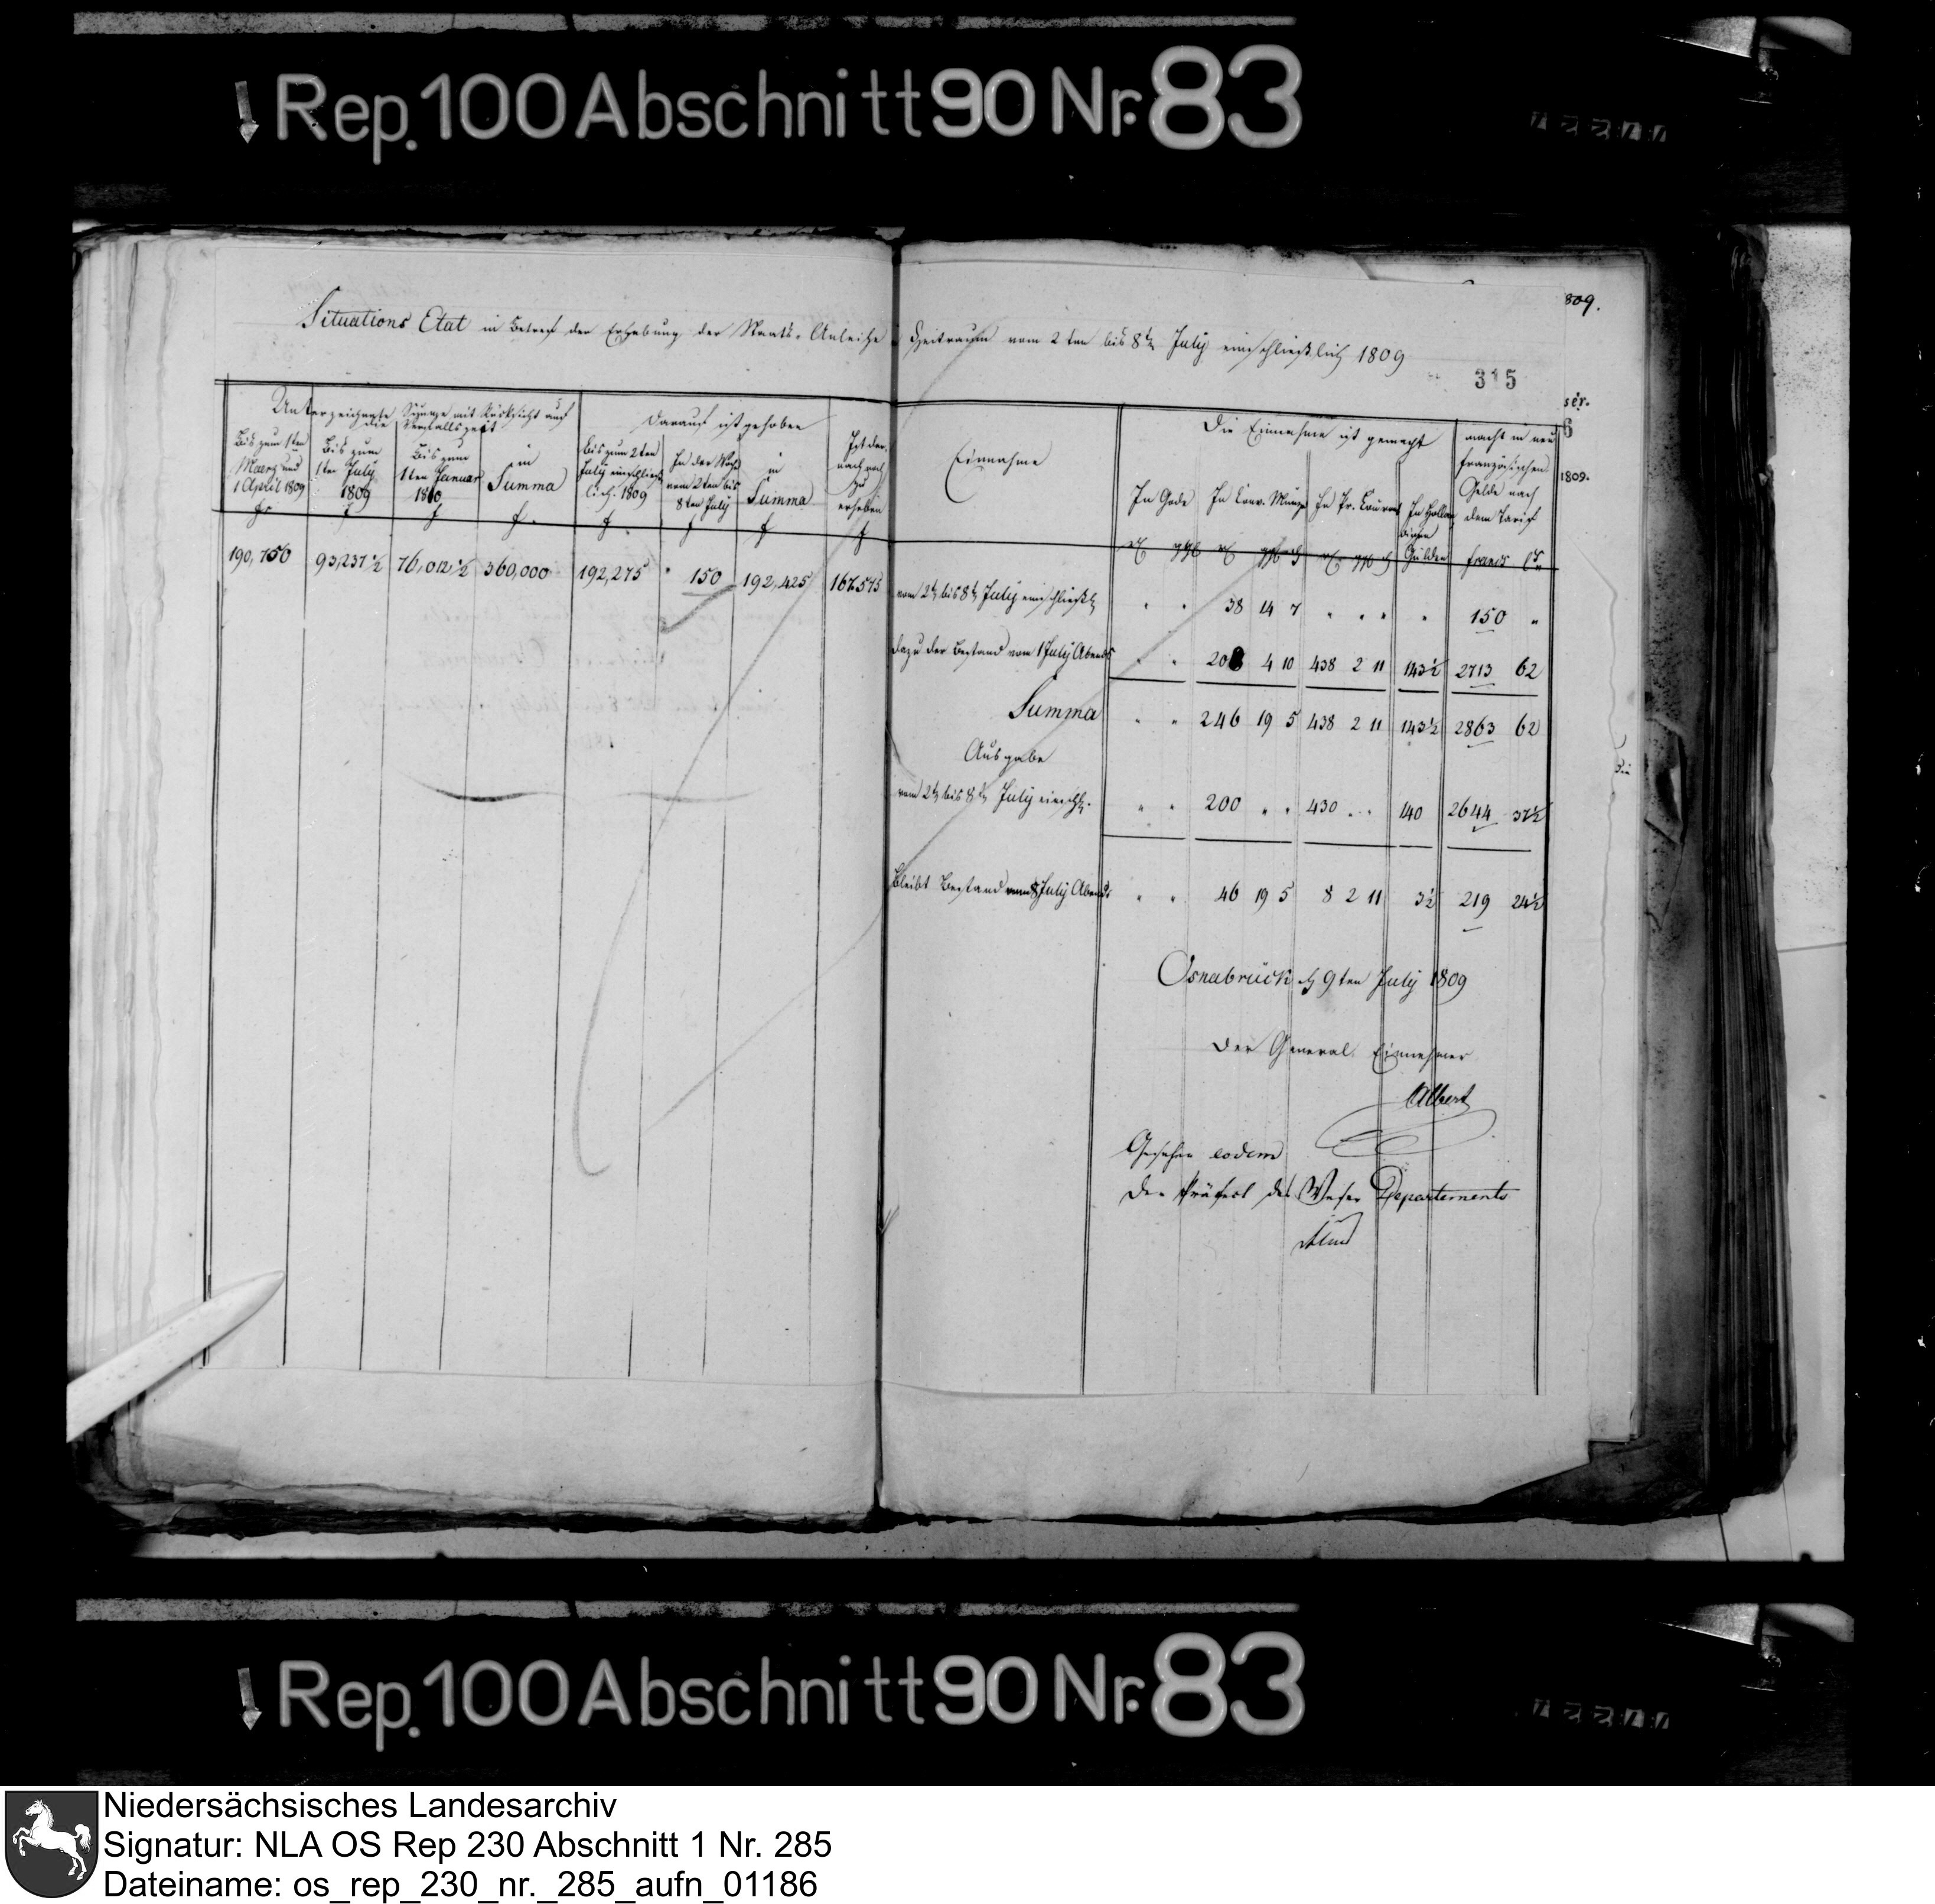 Rep. 100 Abschnitt 90 Nr. 83
809.
Situations Etat in Betref der Erhebung der Staats-Anleihe Zeitraum vom 2ten bis 8t July einschließlich 1809
315
ser.
6
1809.
Unterzeichnete Summe mit Rücksicht auf
die Verfallszeit
Darauf ist gehoben
Bis zum 1ten
Maerz und
1 April 1809
Bis zum
1ten July
1809
Bis zum
1ten Januar
1810
in
Summa
bis zum 2ten
July einschließ
lich 1809
In der Woche
vom 2ten bis
8ten July
in
Summa
Ist dem-
nach noch
zu
erheben
f f f f f f f f
190,750 93,237½ 76,012½ 360,000 192,275 150 192,425 167,575
Einnahme
Die Einnahme ist gemacht
In Golde
In Conv. Münze
In Pr. Courant
In Hollän
dischen
Gulden
macht in neu
französischen
Gelde nach
dem Tarif
francs
vom 2t bis 8t July einschließl " " 38 14 7 " " " " 150 "
dazu der Bestand vom 1 July Abends " " 208 4 10 438 2 11 143½ 2713 62
Summa " " 246 19 5 438 2 11 143½ 2863 62
Ausgabe
vom 2t bis 8t July einschl. " " 200 " " 430 " " 140 2644 37½
bleibt Bestand vom 8 July Abends " " 46 19 5 8 2 11 3½ 219 24½
Osnabrück d 9ten July 1809
Der General Einnehmer
Albert
Gesehen eodem
Der Präfect des Weser Departements
die
Rep. 100 Abschnitt 90 Nr. 83
Niedersächsisches Landesarchiv
Signatur: NLA OS Rep 230 Abschnitt 1 Nr. 285
Dateiname: os_rep_230_nr._285_aufn_01186